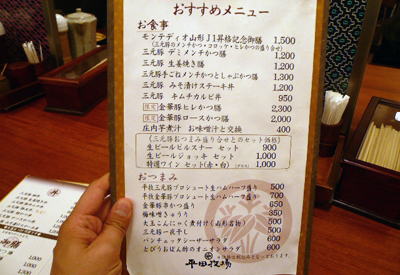 おすすめメニュー
お食事
モンテディオ山形J1昇格記念御膳 1,500
(三元豚のメンチかつ・コロッケ・ヒレかつの盛り合せ)
三元豚 デミメンチかつ膳 1,200
三元豚 生姜焼き膳 1,200
三元豚手ごねメンチかつとしゃぶかつ膳 1,300
三元豚 みそ漬けステーキ丼 1,200
三元豚 キムチカルビ丼 950
限定 金華豚ヒレかつ膳 2,300
限定 金華豚ロースかつ膳 2,000
庄内芋煮汁 お味噌汁と交換 400
(三元豚おつまみ盛り合せとのセット価格)
生ビールピルスナー セット 900
生ビールジョッキ セット 1,000
特選ワイン セット(赤・白) 1,000
おつまみ
平牧三元豚プロシュート生ハムハーフ盛り 500
平牧金華豚プロシュート生ハムハーフ盛り 700
金華豚串かつ盛り 650
梅味噌きゅうり 350
大玉こんにゃく煮付け(山形名物)
三元豚一夜干し
パンチェッタシーザーサラダ
とびうおぽん酢のオニオンサラダ
平田牧場